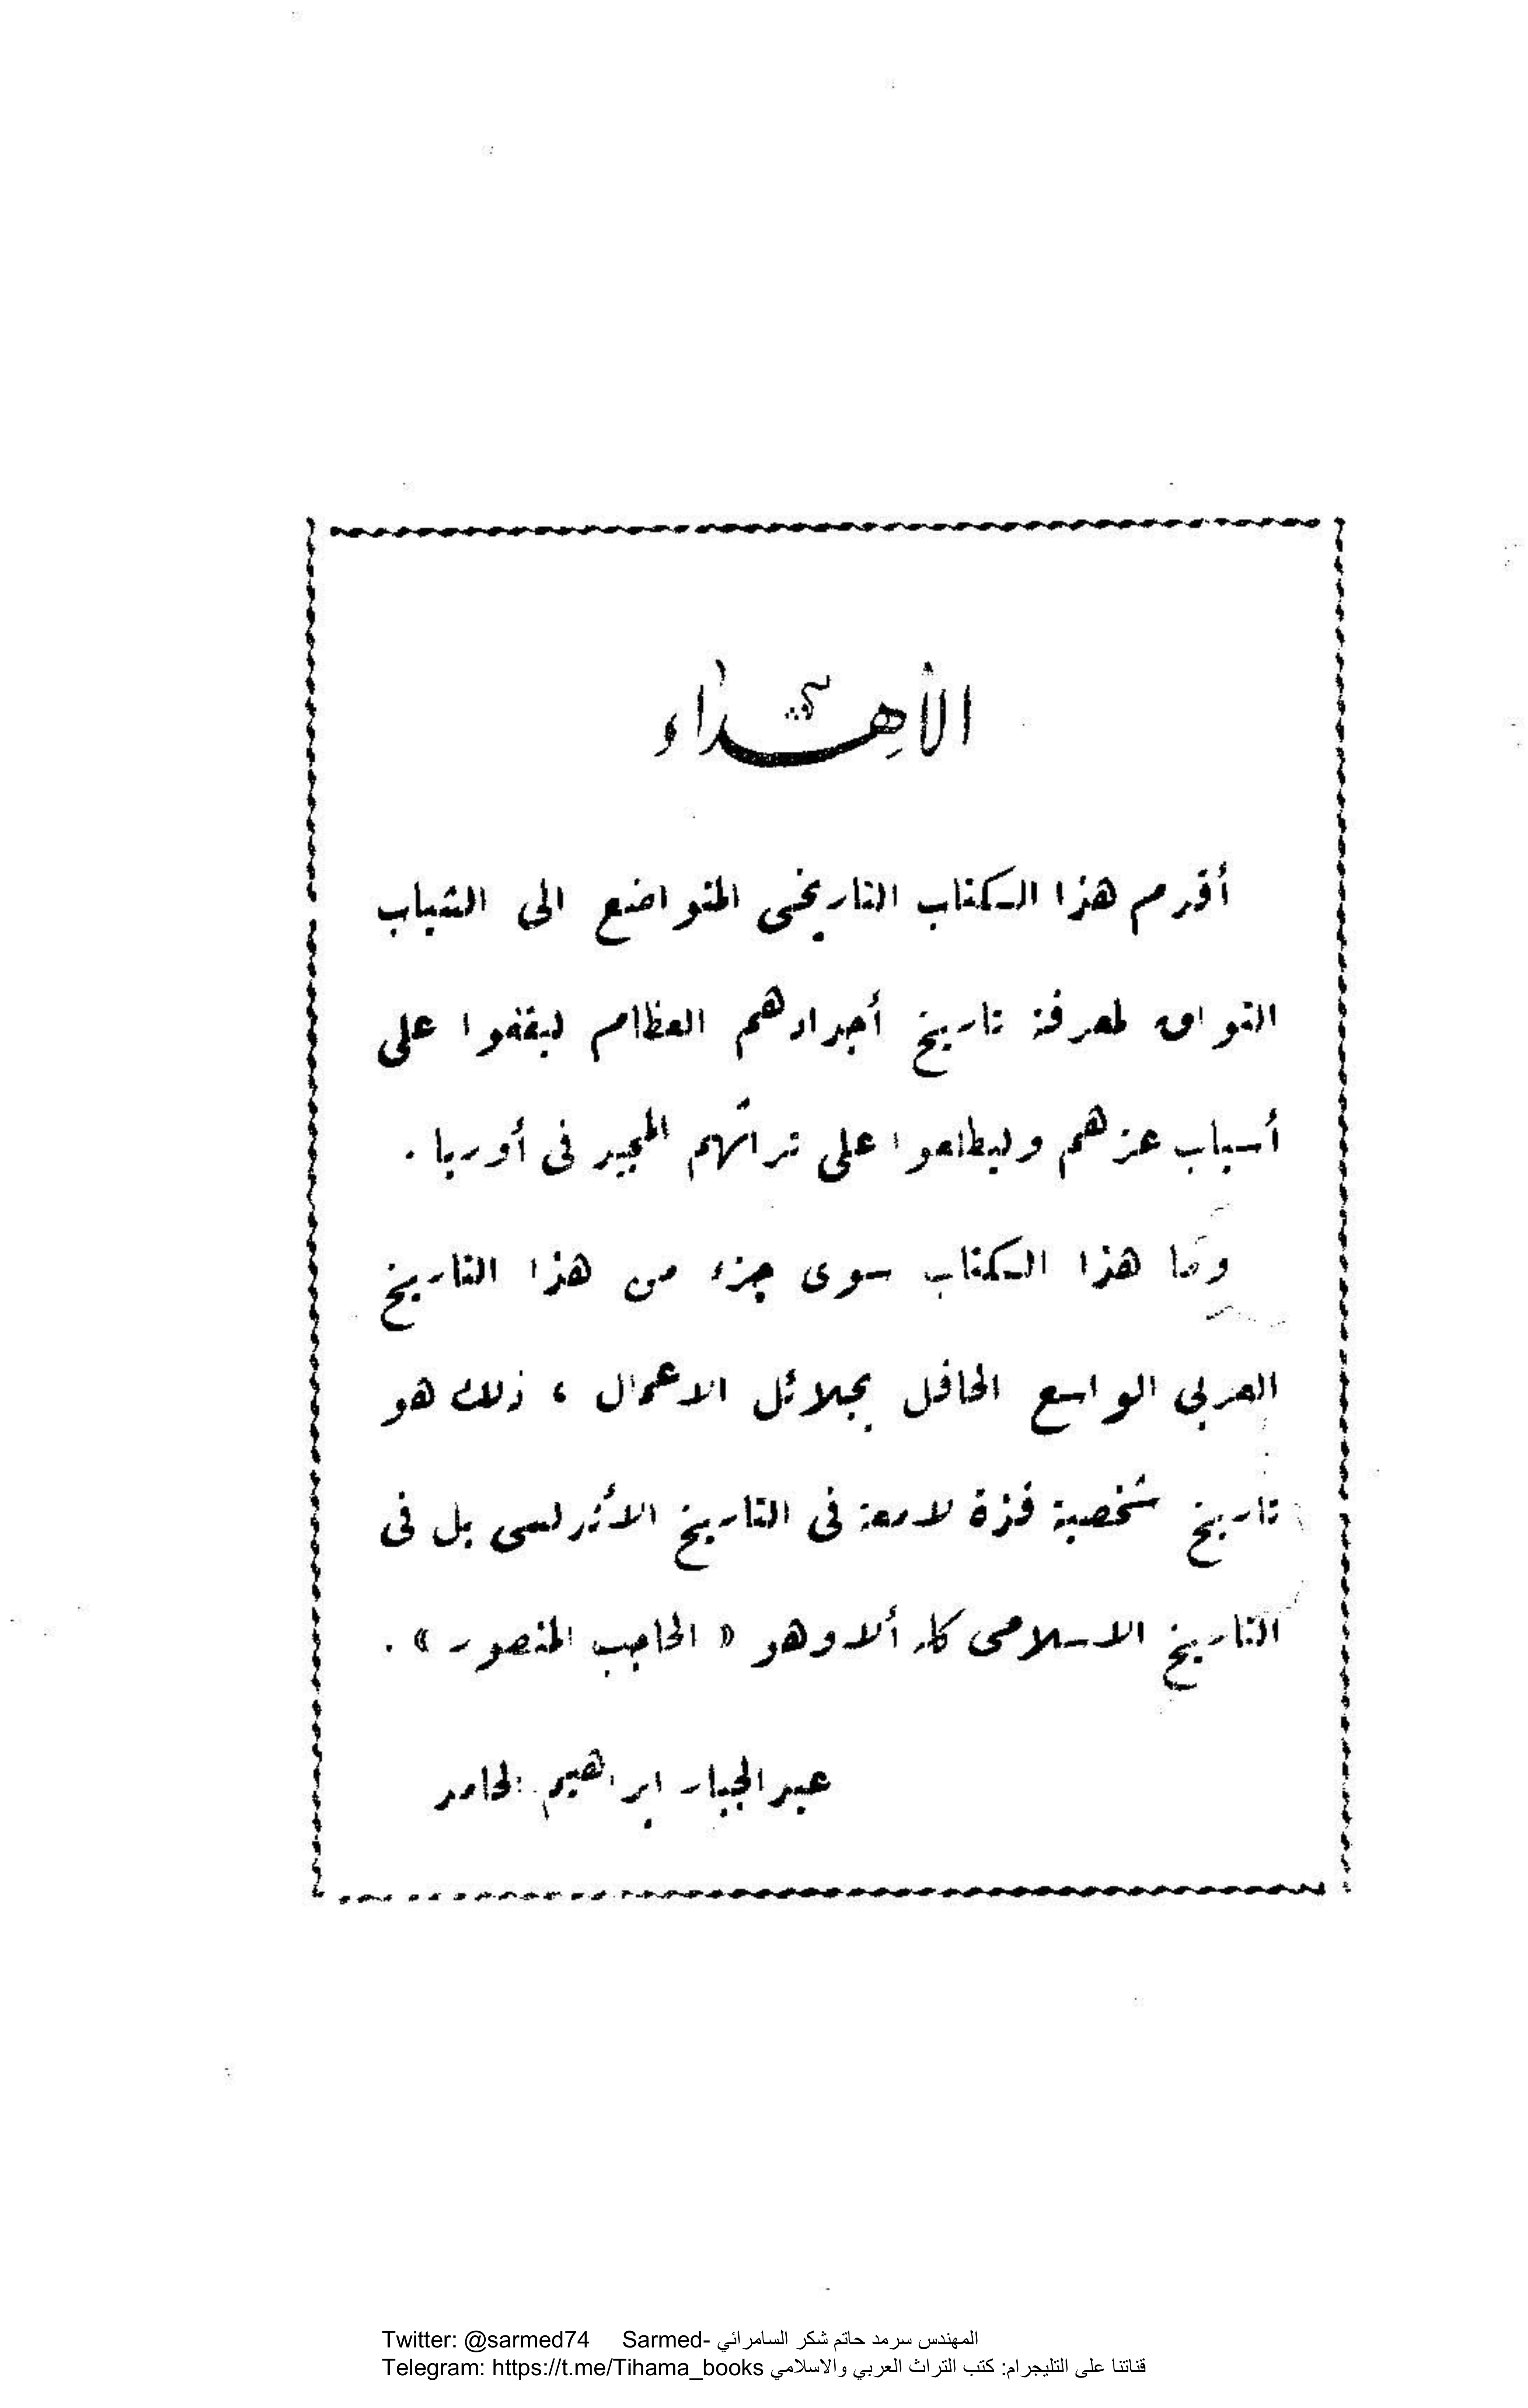 الأهداء
أقدم هذا الكتاب التاريخى المتواضع الى الشباب
التواق لمعرفة تاريخ أجدادهم العظام ليقفوا على
أسباب عزهم وليطلعوا على تراثهم المجيد فى أوربا .
وما هذا الكتاب سوى جزء من هذا التاريخ
العربى الواسع الحافل بجلائل الاعمال ، ذلك هو
تاريخ شخصية فذة لامعة فى التاريخ الأندلسى بل فى
التاريخ الاسلامى كله ألا وهو « الحاجب المنصور » .
عبد الجبار ابراهيم الحامد
Twitter: @sarmed74 Sarmed- المهندس سرمد حاتم شكر السامرائي
Telegram: https://t.me/Tihama_books قناتنا على التليجرام: كتب التراث العربي والاسلامي